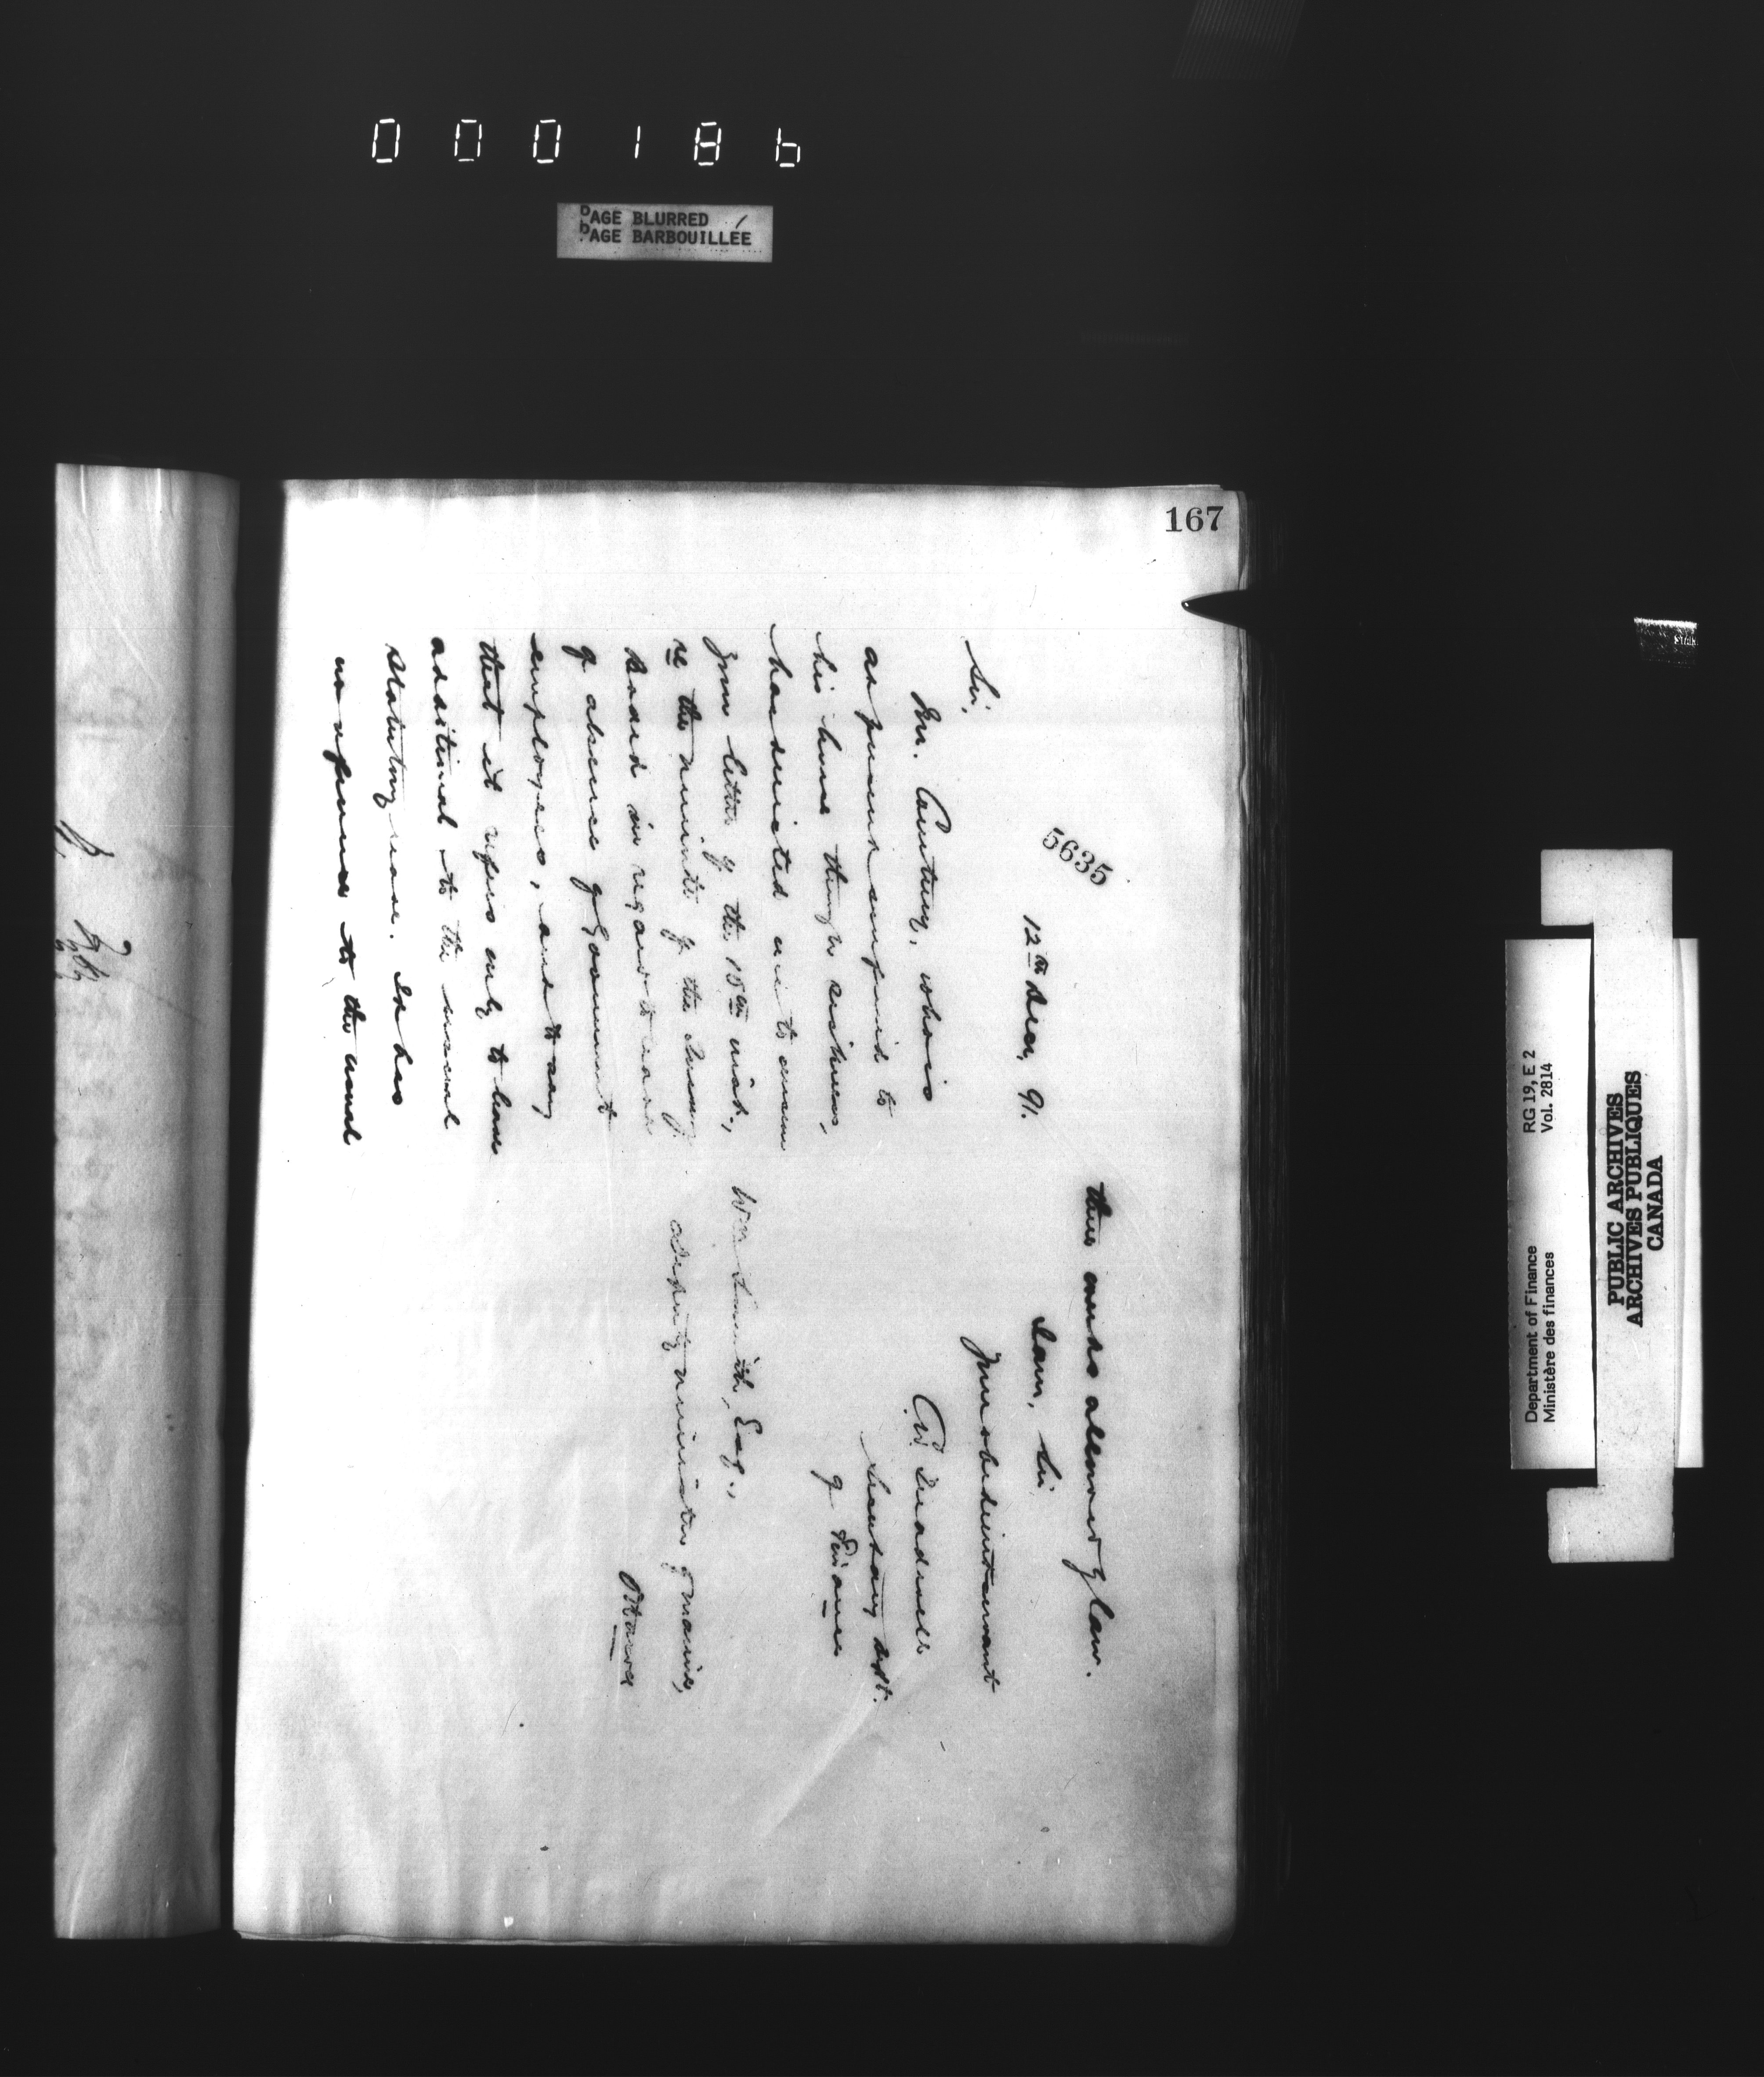 000186
PAGE BLURRED
PAGE BARBOUILLÉE
167
5635
12th Decr, 91.
Sir,
Mr. Courtney, who is
at present confined to
his house through sickness,
has directed me to answer
your letter of the 15th inst.,
re the minute of the Treasury
Board in regard to leave
of absence of Government
employees, and to say
that it refers only to leave
additional to the usual
statutory leave. It has
no reference to the usual
three weeks allowed by law.
I am, Sir
Your obedient servant
Secretary Dept.
of Finance
Wm Smith, Esq.,
Deputy Minister of Marine,
Ottawa
Department of Finance
Ministère des finances
RG 19, E 2
Vol. 2814
PUBLIC ARCHIVES
ARCHIVES PUBLIQUES
CANADA